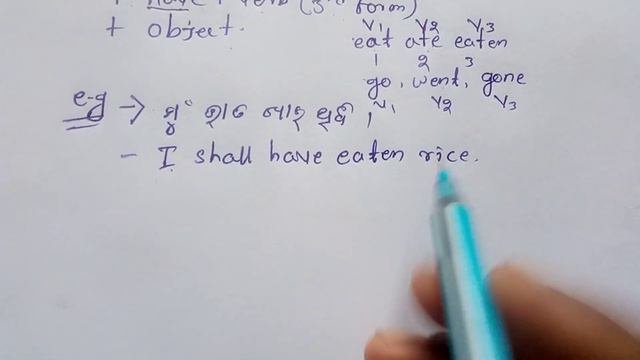 + have + verb (3rd form)
+ object.
V1 V2 V3
eat ate eaten
1 2 3
go, went, gone
V1 V2 V3
e.g → ମୁଁ ଭାତ ଖାଇ ଥିବି,
- I shall have eaten rice.